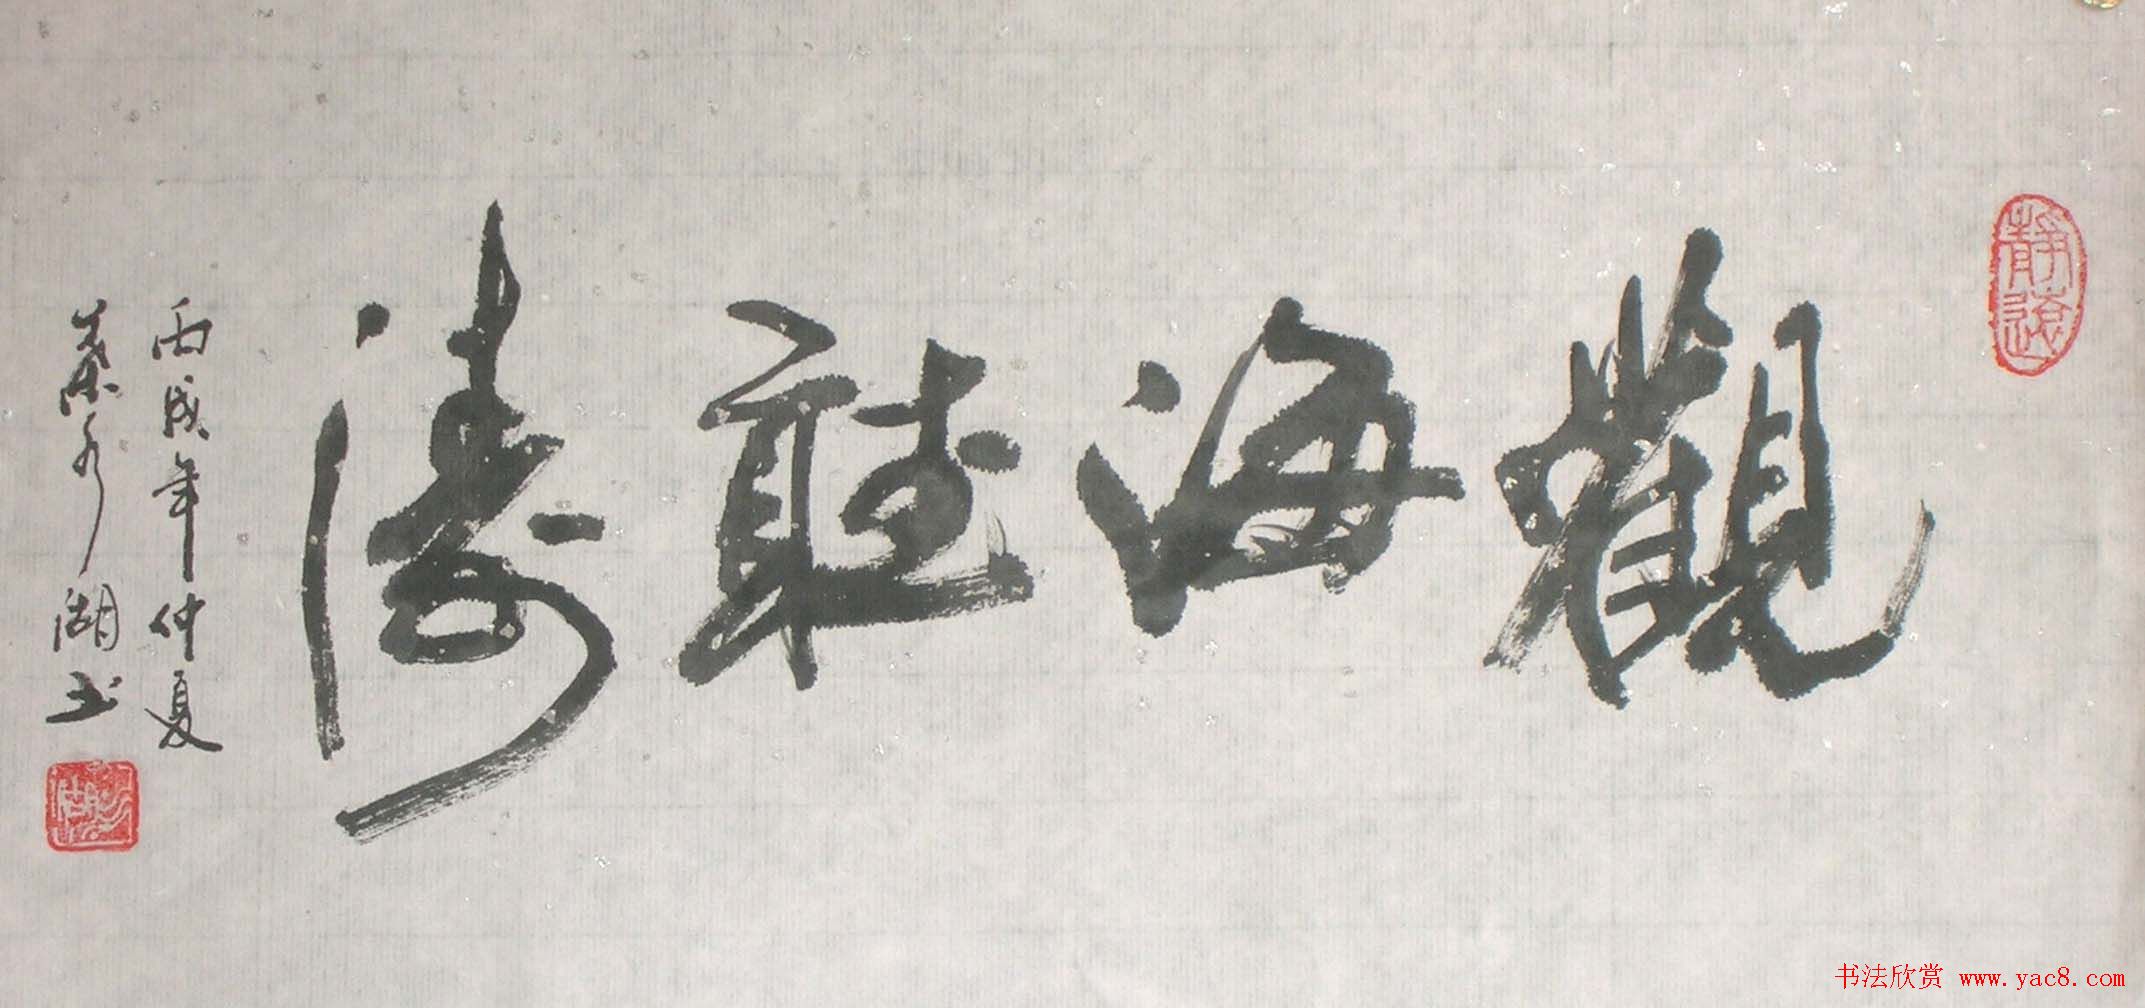 觀海聽濤
丙戌年仲夏
湖书
靜遠
书法欣赏 www.yac8.com